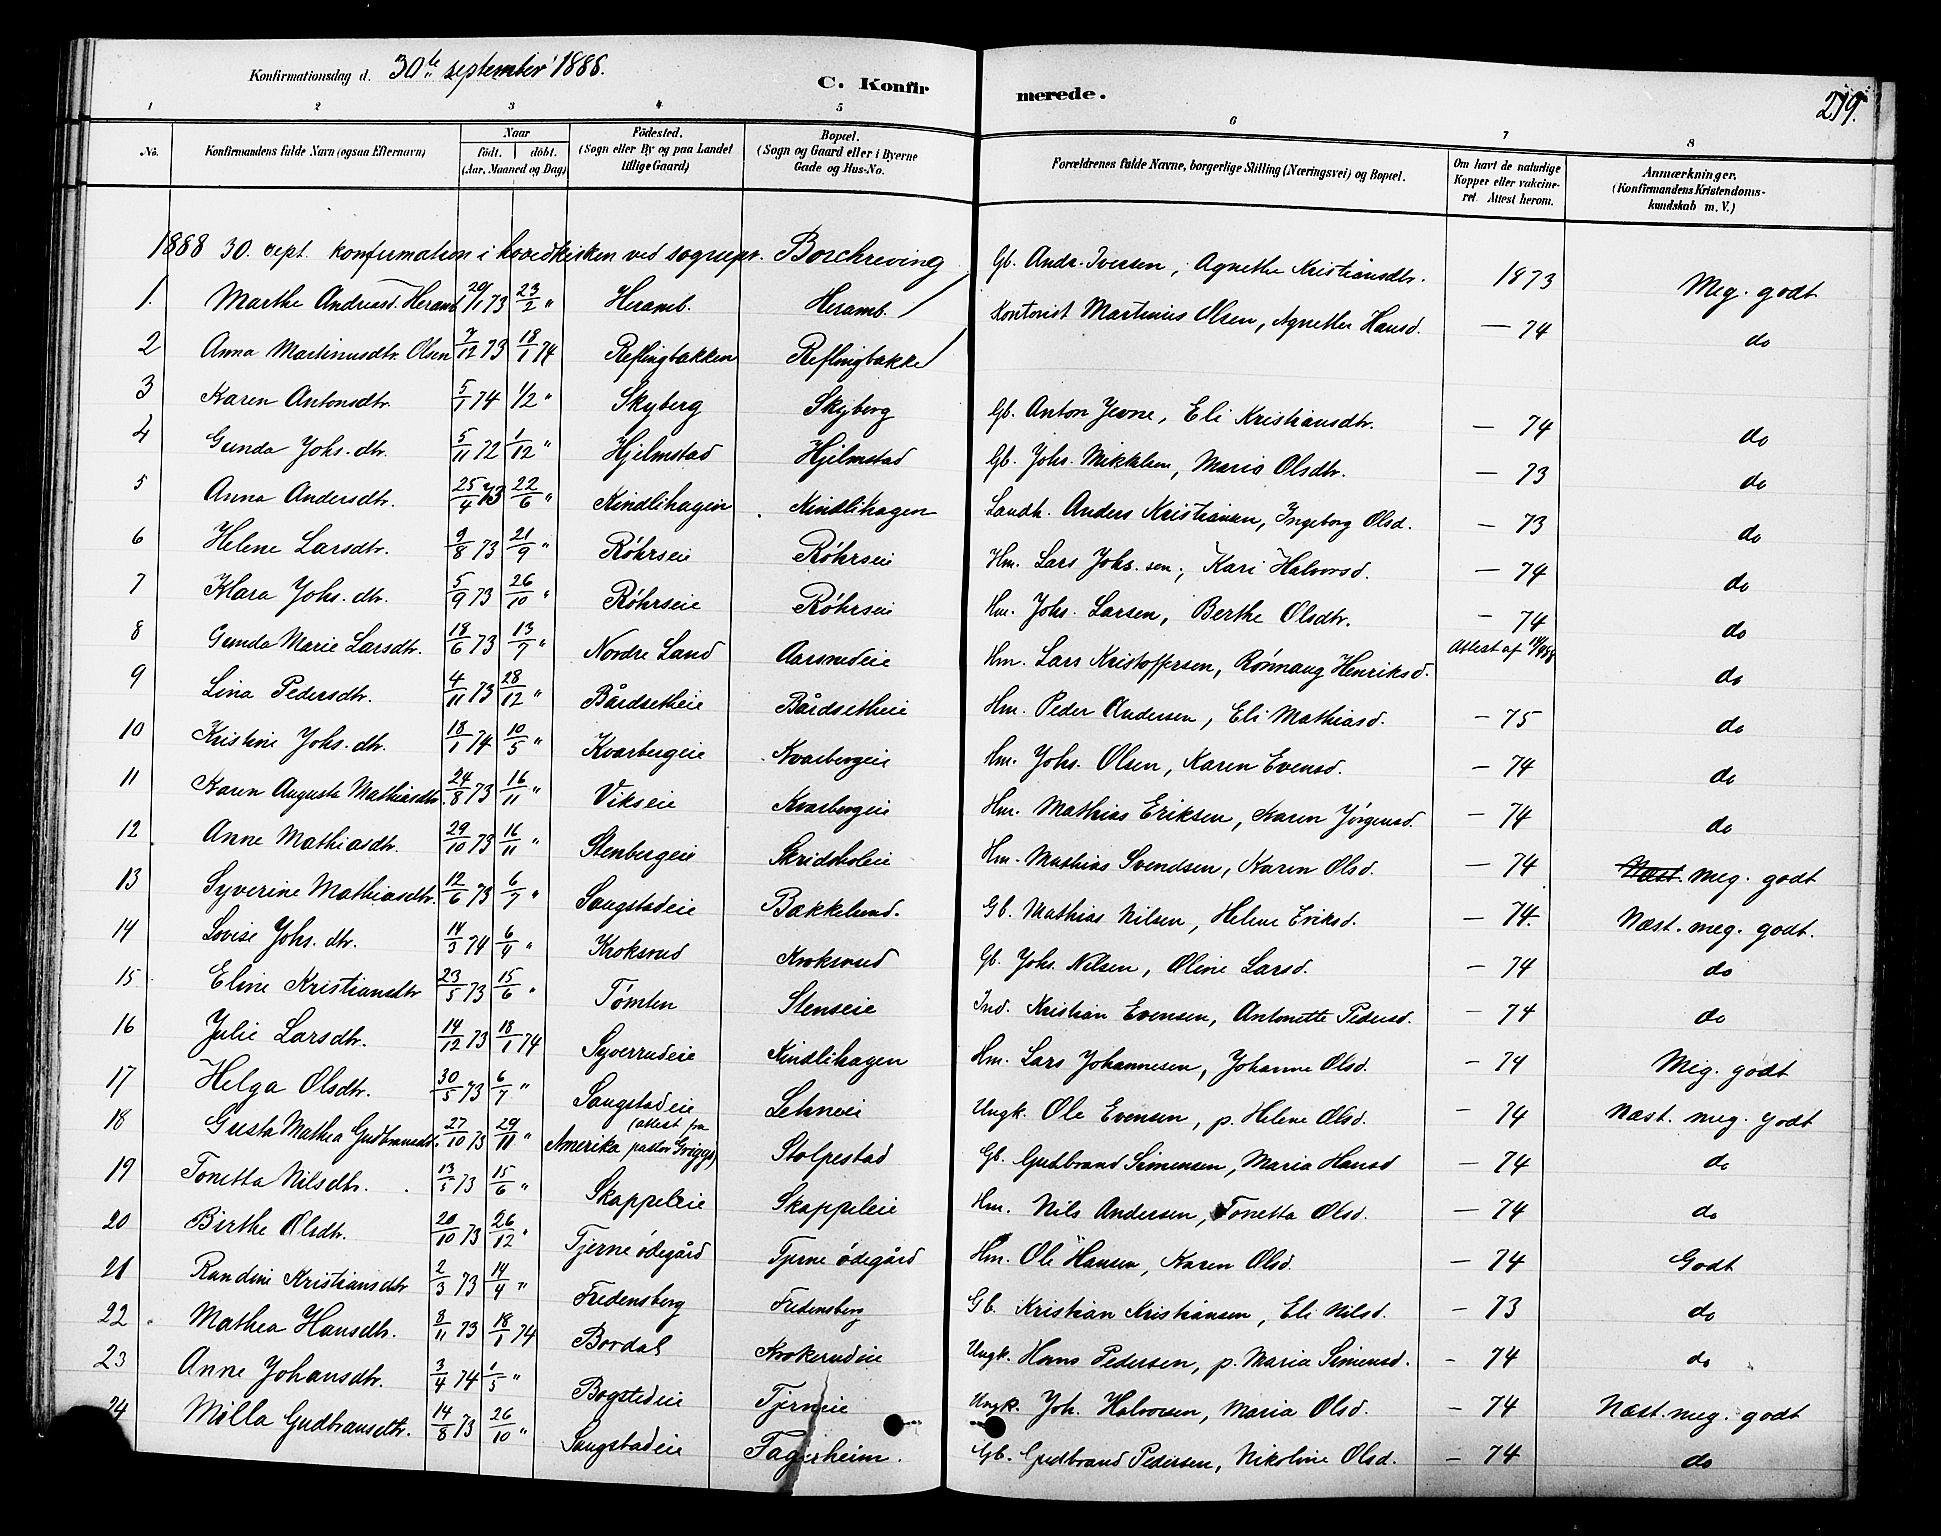 Konfirmationsdag d. 30te september 1888.
C. Konfirmerede.
219.
1 2 3 4 5 6 7 8
No. Konfirmandens fulde Navn (ogsaa Efternavn) Naar födt. döbt. (Aar, Maaned og Dag) Födested. (Sogn eller By og paa Landet tillige Gaard) Bopæl. (Sogn og Gaard eller i Byerne Gade og Hus-No. Forældrenes fulde Navne, borgerlige Stilling (Næringsvei) og Bopæl. Om havt de naturlige Kopper eller vakcineret. Attest herom. Anmærkninger. (Konfirmandens Kristendomskundskab m. V.)
1888 30. sept. konfirmation i hovedkirken ved sognepr. Borchreving
1. Marthe Andreasd. Heramb 20/1 73 23/2 " Heramb. Heramb. Gb. Andr. Iversen, Agnethe Kristiansdtr. 1873 Meg. godt
2 Anna Martinusdtr. Olsen 7/12 73 18/1 74 Reflingbakken Reflingbakke Kontorist Martinius Olsen, Agnethe Hansd. — 74 do
3 Karen Antonsdtr. 5/1 74 1/2 " Skyberg Skyberg Gb. Anton Jevne, Eli Kristiansdtr. — 74 do
4 Gunda Johs. dtr. 5/11 72 1/12 " Hjelmstad Hjelmstad Gb. Johs. Mikkelsen, Maria Olsdtr. — 73 do
5 Anna Andersdtr. 25/4 73 22/6 " Kindlihagen Kindlihagen Landh. Anders Kristiansen, Ingeborg Olsd. — 73 do
6 Helene Larsdtr. 9/8 73 21/9 " Röhrseie Röhrseie Hm. Lars Johs. sen, Kari Halvorsd. — 74 do
7 Klara Johs. dtr. 5/9 73 26/10 " Röhrseie Röhrseie Hm. Johs. Larsen, Berthe Olsdtr. — 74 do
8 Gunda Marie Larsdtr. 18/6 73 13/7 " Nordre Land Aarsnedeie Hm. Lars Kristoffersen, Rönnaug Henriksd. Attest af do
9 Lina Pedersdtr. 4/11 73 28/12 " Bårdsetheie Bårdsetheie Hm. Peder Andersen, Eli Mathiasd. — 75 do
10 Kristine Johs. dtr. 18/1 74 10/5 " Kvarbergeie Kvarbergeie Hm. Johs. Olsen, Karen Evensd. — 74 do
11 Karen Augusta Mathiasdtr. 24/8 73 16/11 " Vikseie Kvarbergeie Hm. Mathias Eriksen, Karen Jörgensd. — 74 do
12 Anne Mathiasdtr. 29/10 73 16/11 " Stenbergeie Skridsholeie Hm. Mathias Svendsen, Karen Olsd. — 74 Næst. meg. godt
13 Syverine Mathiasdtr. 12/6 73 6/7 " Saugstadeie Bakkelund. Gb. Mathias Nilsen, Helene Eriksd. — 74. Næst. meg. godt.
14 Lovise Johs. dtr. 14/3 74 6/4 " Kroksrud Kroksrud Gb. Johs. Nilsen, Oline Larsd. — 74 do
15 Eline Kristiansdtr 23/5 73 15/6 " Tömten Stenseie Ind. Kristian Evensen, Antonette Pedersd. — 74 do
16 Julie Larsdtr. 14/12 73 18/1 74 Syverrudeie Kindlihagen Hm. Lars Johannesen, Johanne Olsd. — 74 Meg. godt
17 Helga Olsdtr. 30/5 73 6/7 " Saugstadeie Lehneie Ungk. Ole Evensen, p. Helene Olsd. — 74 Næst. meg. godt
18 Gusta Mathea Gudbransdt. 27/10 73 29/11 " Amerika (attest fra pastor ) Stolpestad Gb. Gudbrand Simensen, Maria Hansd — 74 do
19 Tonetta Nilsdtr. 13/5 73 15/6 " Skappeleie Skappeleie Hm. Nils Andersen, Tonetta Olsd. — 74 do
20 Birthe Olsdtr. 20/10 73 26/12 " Tjerne ödegård Tjerne ödegård Hm. Ole Hansen, Karen Olsd. — 74 Godt
21 Randine Kristiansdtr 2/3 73 14/4 " Fredensberg Fredensberg Gb. Kristian Kristiansen, Eli Nilsd. — 73 do
22 Mathea Hansdtr. 8/11 73 18/1 74 Bordal Krokerudeie Ungk. Hans Pedersen, p. Maria Simensd. — 74 do
23 Anne Johansdtr. 3/4 74 1/5 " Bogstedeie Tjerneie Ungk. Joh. Halvorsen, Maria Olsd. — 74 Næst. meg. godt
24 Mölla Gudbransdtr. 14/8 73 26/10 " Saugstadeie Fagerheim. Gb. Gudbrand Pedersen, Nikoline Olsd. — 74 do